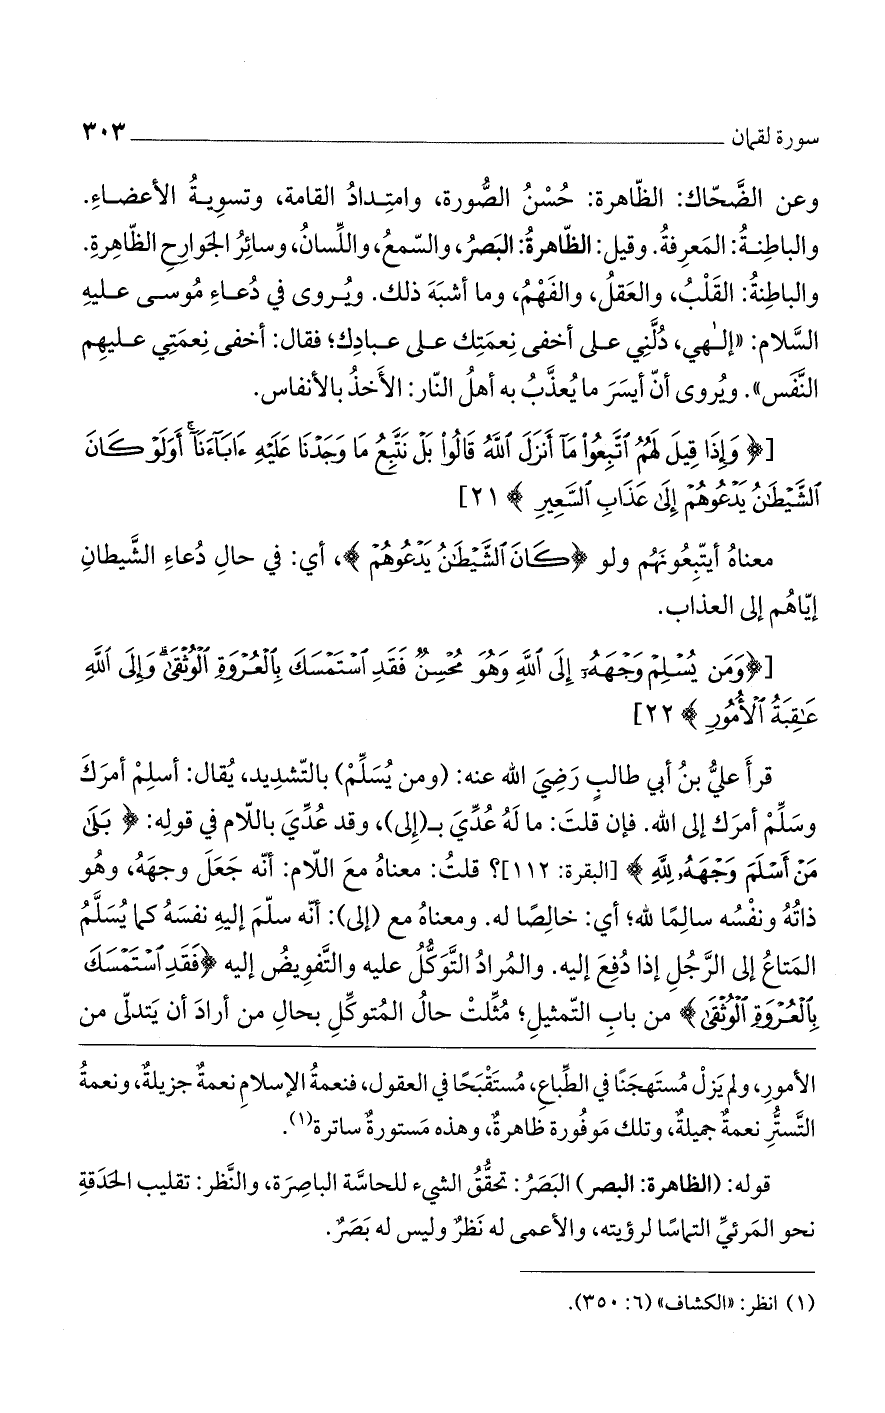 سورة لقمان ٣٠٣
وعن الضَّحّاك: الظّاهرة: حُسْنُ الصُّورة، وامتِدادُ القامة، وتسوِيةُ الأعضاءِ.
والباطِنةُ: المَعرِفةُ. وقيل: الظّاهرةُ: البَصرُ، والسّمعُ، واللِّسانُ، وسائرُ الجَوارِحِ الظّاهِرةِ.
والباطِنةُ: القَلْبُ، والعَقلُ، والفَهْمُ، وما أشبَهَ ذلك. ويُروى في دُعاءِ مُوسى عليهِ
السَّلام: «إلٰهي، دُلَّنِي على أخفى نِعمَتِك على عبادِك؛ فقال: أخفى نِعمَتِي عليهِم
النَّفَس». ويُروى أنّ أيسَرَ ما يُعذَّبُ به أهلُ النّار: الأَخذُ بالأنفاس.
[﴿ وَإِذَا قِيلَ لَهُمُ ٱتَّبِعُوا۟ مَآ أَنزَلَ ٱللَّهُ قَالُوا۟ بَلْ نَتَّبِعُ مَا وَجَدْنَا عَلَيْهِ ءَابَآءَنَآ ۚ أَوَلَوْ كَانَ
ٱلشَّيْطَٰنُ يَدْعُوهُمْ إِلَىٰ عَذَابِ ٱلسَّعِيرِ ﴾ ٢١]
معناهُ أيتّبِعُونَهُم ولو ﴿كَانَ ٱلشَّيْطَٰنُ يَدْعُوهُمْ ﴾، أي: في حالِ دُعاءِ الشَّيطانِ
إيّاهُم إلى العذاب.
[﴿وَمَن يُسْلِمْ وَجْهَهُۥٓ إِلَى ٱللَّهِ وَهُوَ مُحْسِنٌ فَقَدِ ٱسْتَمْسَكَ بِٱلْعُرْوَةِ ٱلْوُثْقَىٰ ۗ وَإِلَى ٱللَّهِ
عَٰقِبَةُ ٱلْأُمُورِ ﴾ ٢٢]
قرأَ عليُّ بنُ أبي طالبٍ رَضِيَ الله عنه: (ومن يُسَلِّمْ) بالتّشديد، يُقال: أسلِمْ أمرَكَ
وسَلِّمْ أمرَك إلى الله. فإن قلتَ: ما لَهُ عُدِّيَ بـ(إلى)، وقد عُدِّيَ باللّام في قولِه: ﴿ بَلَىٰ
مَنْ أَسْلَمَ وَجْهَهُۥ لِلَّهِ ﴾ [البقرة: ١١٢]؟ قلتُ: معناهُ معَ اللّام: أنّه جَعَلَ وجهَهُ، وهُو
ذاتُهُ ونفْسُه سالِمًا لله؛ أي: خالِصًا له. ومعناهُ مع (إلى): أنّه سلّمَ إليهِ نفسَهُ كما يُسَلَّمُ
المَتاعُ إلى الرَّجُلِ إذا دُفِعَ إليه. والمُرادُ التَّوَكُّلُ عليه والتَّفوِيضُ إليه ﴿فَقَدِ ٱسْتَمْسَكَ
بِٱلْعُرْوَةِ ٱلْوُثْقَىٰ﴾ من بابِ التّمثيلِ؛ مُثِّلتْ حالُ المُتوكِّلِ بحالِ من أرادَ أن يَتدلّى من
الأمورِ، ولم يَزلْ مُستَهجَنًا في الطِّباعِ، مُستَقْبَحًا في العقول، فنعمةُ الإسلامِ نعمةٌ جزيلةٌ، ونعمةُ
التَّستُّرِ نعمةٌ جميلةٌ، وتلك مَوفُورة ظاهرةٌ، وهذه مَستورةٌ ساترة(١).
قوله: (الظاهرة: البصر) البَصَرُ: تحقُّقُ الشيء للحاسَّة الباصِرَة، والنَّظر: تقليب الحَدَقةِ
نحو المَرئيِّ التماسًا لرؤيته، والأعمى له نَظرٌ وليس له بَصَرٌ.
(١) انظر: «الكشاف» (٦: ٣٥٠).